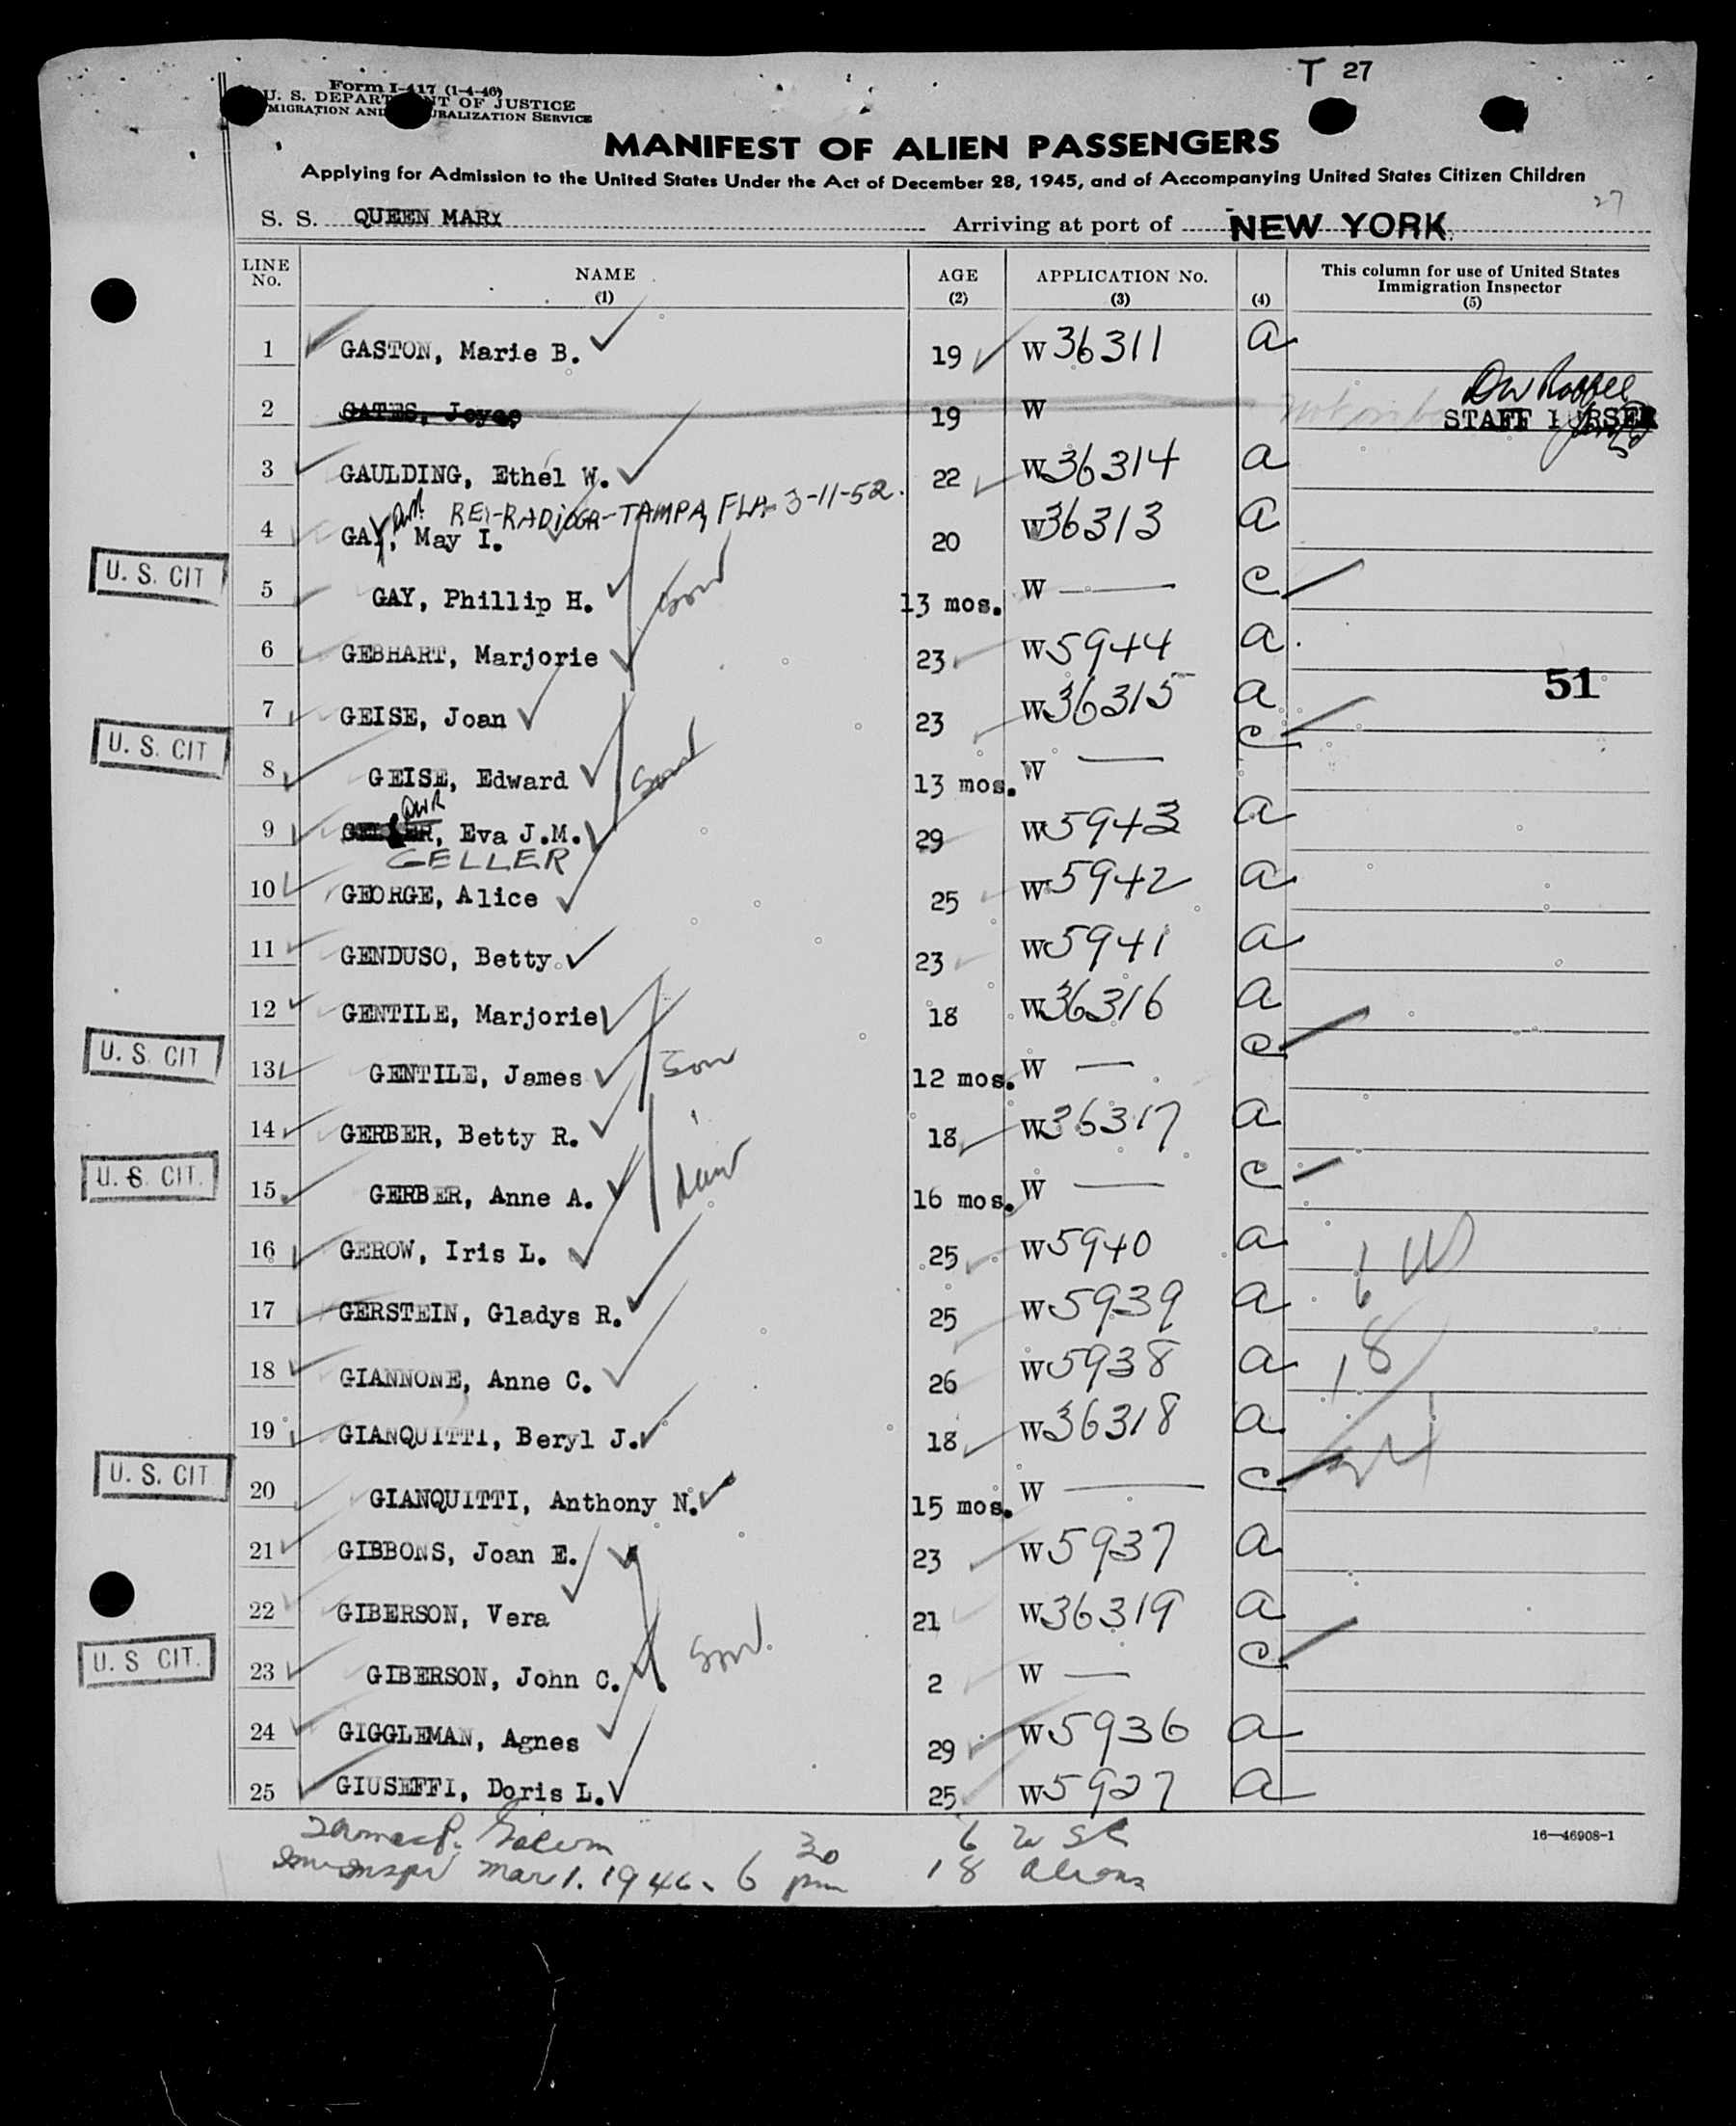 T 27
Form I-417 (1-4-46)
U. S. DEPARTMENT OF JUSTICE
IMMIGRATION AND NATURALIZATION SERVICE
MANIFEST OF ALIEN PASSENGERS
Applying for Admission to the United States Under the Act of December 28, 1945, and of Accompanying United States Citizen Children
27
S. S. QUEEN MARY Arriving at port of NEW YORK
LINE No. NAME (1) AGE (2) APPLICATION No. (3) (4) This column for use of United States Immigration Inspector (5)
1 GASTON, Marie B. 19 W 36311 a
2 GATES, Joyce 19 W STAFF PURSER
3 GAULDING, Ethel W. 22 W 36314 a
RE-RADIOGR-TAMPA, FLA- 3-11-52.
4 GAY, May I. 20 W 36313 a
U. S. CIT 5 GAY, Phillip H. son 13 mos. W — c
6 GEBHART, Marjorie 23 W 5944 a
51
7 GEISE, Joan 23 W 36315 a
U. S. CIT 8 GEISE, Edward son 13 mos. W — c
DWR
9 Eva J.M. 29 W 5943 a
GELLER
10 GEORGE, Alice 25 W 5942 a
11 GENDUSO, Betty 23 W 5941 a
12 GENTILE, Marjorie 18 W 36316 a
U. S. CIT 13 GENTILE, James son 12 mos. W — c
14 GERBER, Betty R. 18 W 36317 a
U. S. CIT. 15 GERBER, Anne A. 16 mos. W — c
16 GEROW, Iris L. 25 W 5940 a
17 GERSTEIN, Gladys R. 25 W 5939 a 6
18 GIANNONE, Anne C. 26 W 5938 a 18
19 GIANQUITTI, Beryl J. 18 W 36318 a
U. S. CIT 20 GIANQUITTI, Anthony N. 15 mos. W — c 24
21 GIBBONS, Joan E. 23 W 5937 a
22 GIBERSON, Vera 21 W 36319 a
U. S CIT. 23 GIBERSON, John C. son. 2 W — c
24 GIGGLEMAN, Agnes 29 W 5936 a
25 GIUSEFFI, Doris L. 25 W 5927 a
16—46908-1
6
Mar 1. 1946 - 6 30 pm 18 Aliens